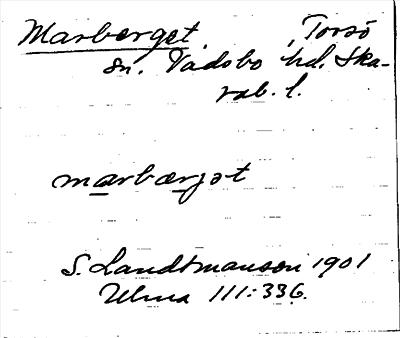 Marberget, Torsö
sn. Vadsbo hd. Ska-
rab. l.
marbærjət
S. Landtmanson 1901
Ulma 111:336.